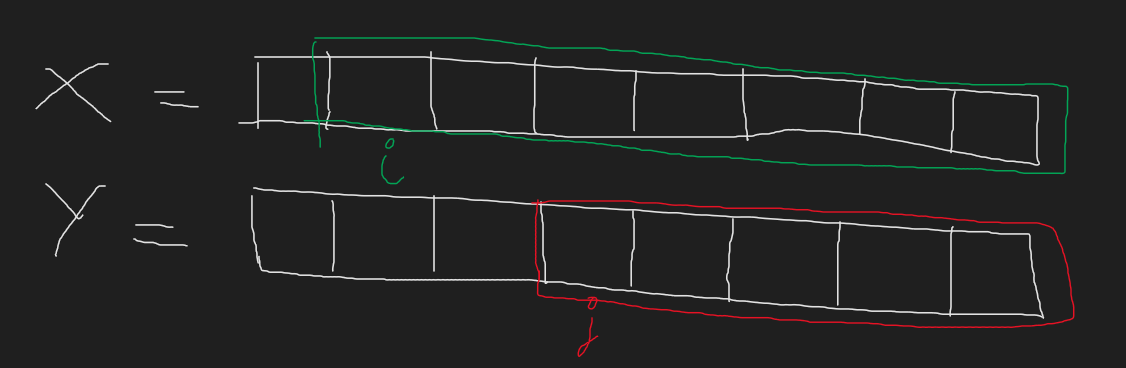 X =
i
Y =
j